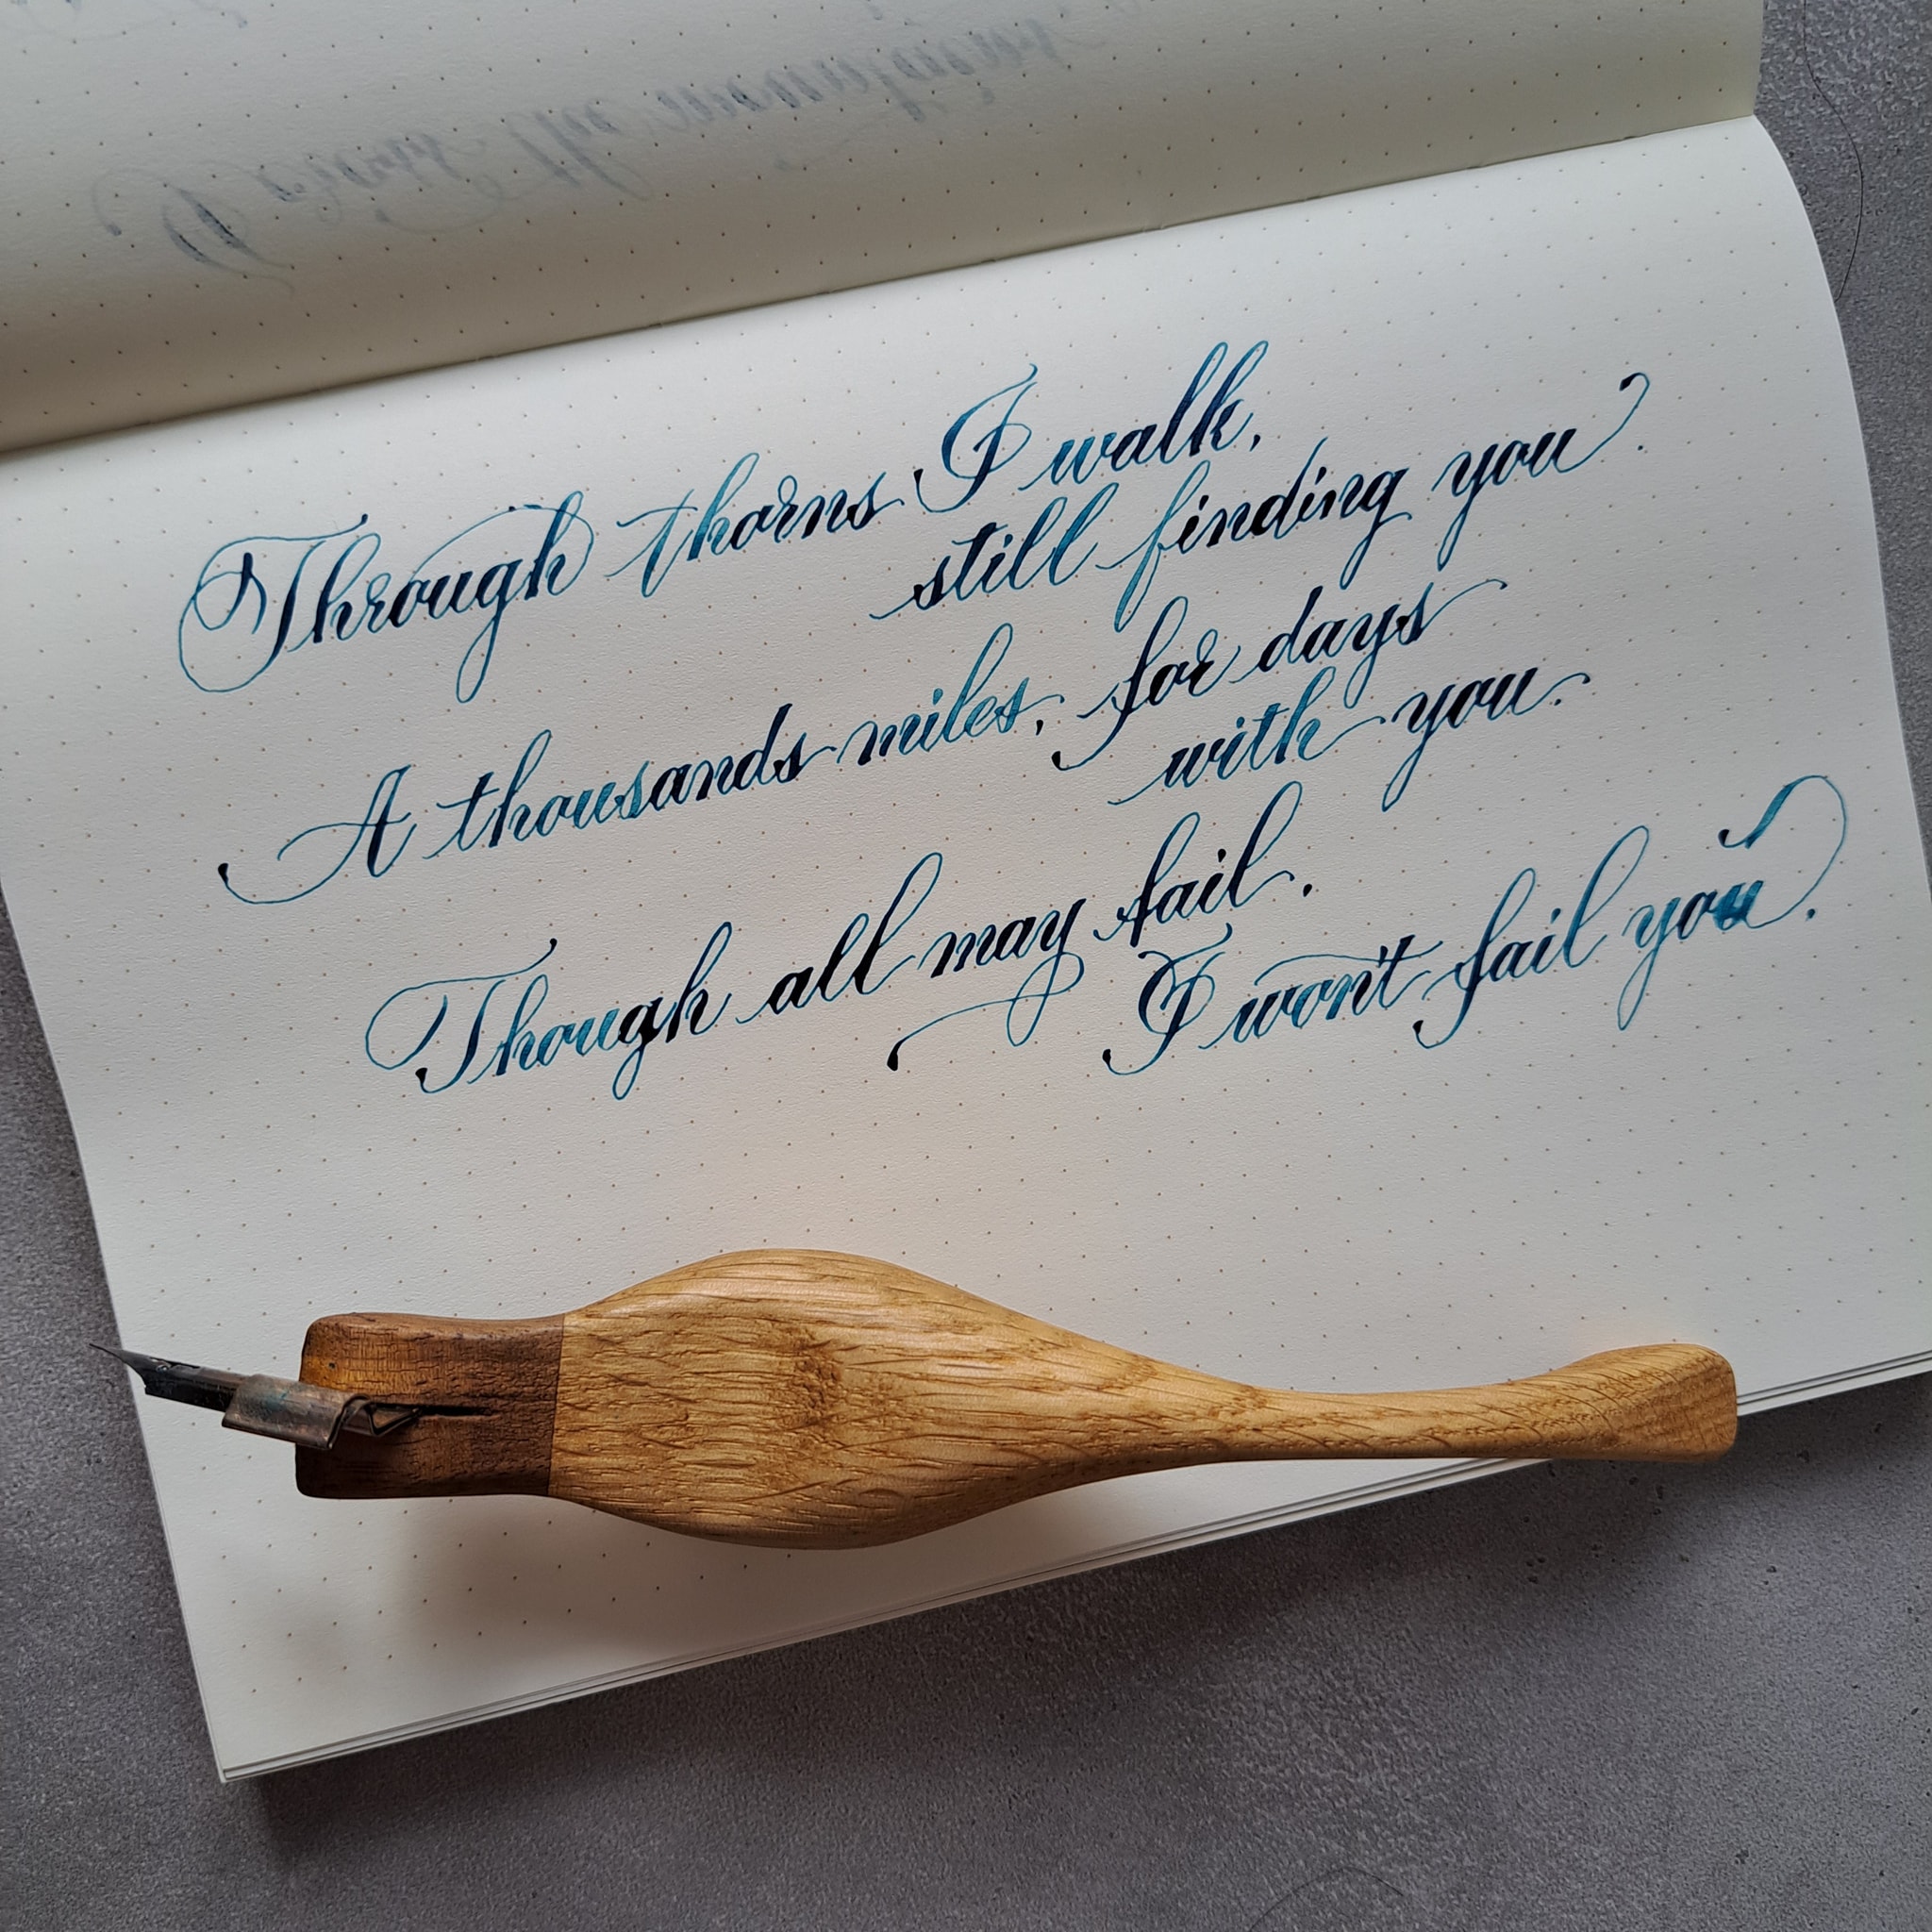 Through thorns I walk,
still finding you.
A thousands miles, for days
with you.
Though all may fail.
I won't fail you.
the mountains